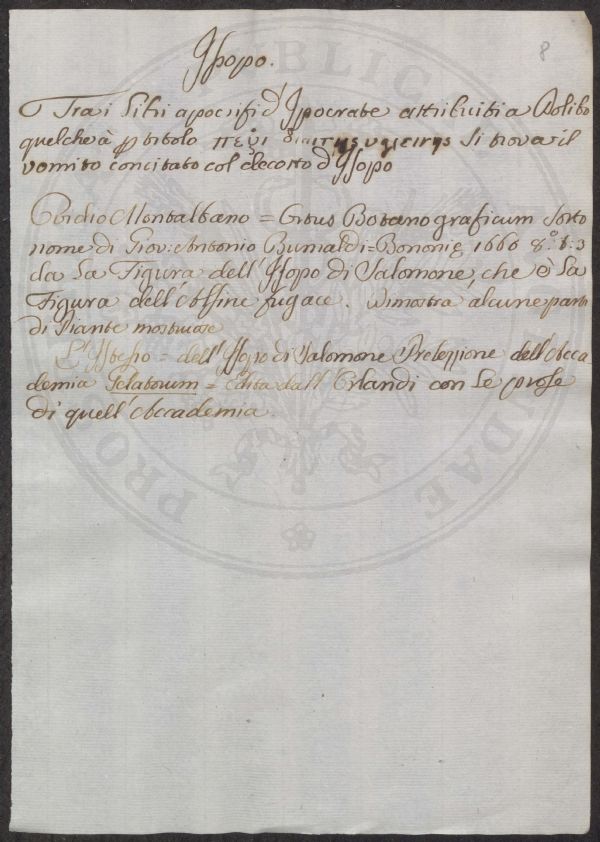 Issopo.
8
Tra i Libri apocrifi d'Ipocrate attribuiti a Polibo
quel che à ꝑ titolo περι διαιτης υγιεινης si trova il
vomito concitato col decotto d'Issopo
Ovidio Montalbano = Ortus Botanograficum sotto
nome di Giov: Antonio Bumaldi = Bononię 1660 8.º t: 3
da la Figura dell'Issopo di Salomone, che è la
Figura dell'Alsine fugace. Dimostra alcune parti
di Piante mostruose
L'Istesso = dell'Issopo di Salomone Protezzione dell'Acca
demia Gelatorum = edita dall'Orlandi con le prose
di quell'Accademia.